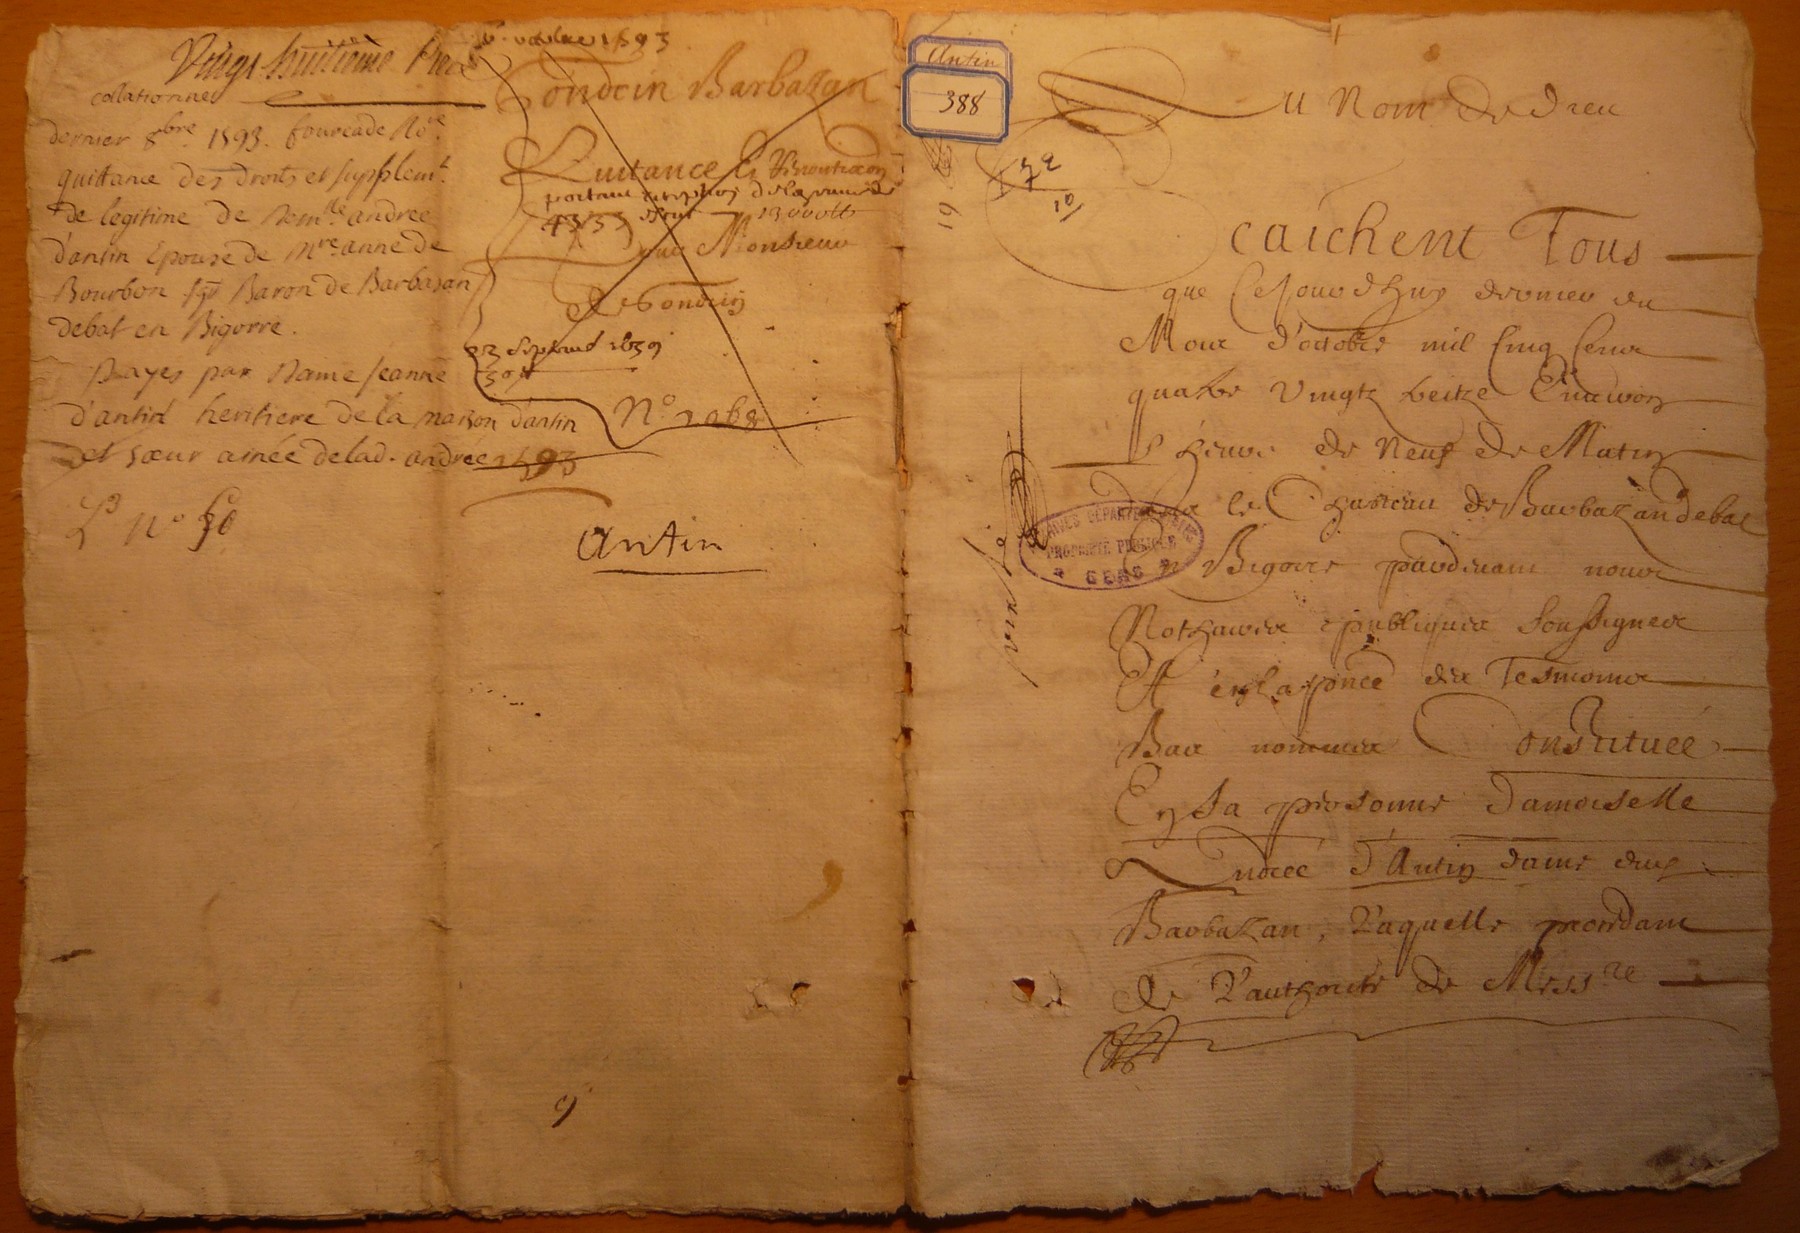 Vingt huitieme Piece
collationnée
dernier 8bre. 1593. fourcade Nore.
quittance des droits et supplemt.
de legitime de demlle andree
d'antin Epouse de Mre anne de
Bourbon sgr Baron de Barbasan
debat en Bigorre.
Payes par Dame Jeanne
d'antin heritiere de la maison d'antin
et sœur ainée de lad. andrée 1593
L3 n° 50
1593
Gondrin Barbazan
Quitance &
portant
4333 13000tt
pour Monsieur
de Gondrin
23
N° 2068
Antin
9
Antin
388
Au Nom de dieu
19
Scaichent Tous
que Cejourdhuy dernier du
Mois d'octobre mil Cinq Cens
quatre vingtz treitze Environ
l'heure de Neuf de Matin
dans le Chasteau de Barbazandebat
En Bigorre pardevant nous
Nothaires publiques soussignes
Et en la pnce des Tesmoins
Bas nommes Constituée
En sa personne Damoiselle
Andreé d'Antin dame dud
Barbazan, Laquelle procedant
de L'authorité de Messre
ARCHIVES DÉPARTEMENTALES
PROPRIÉTÉ PUBLIQUE
GERS